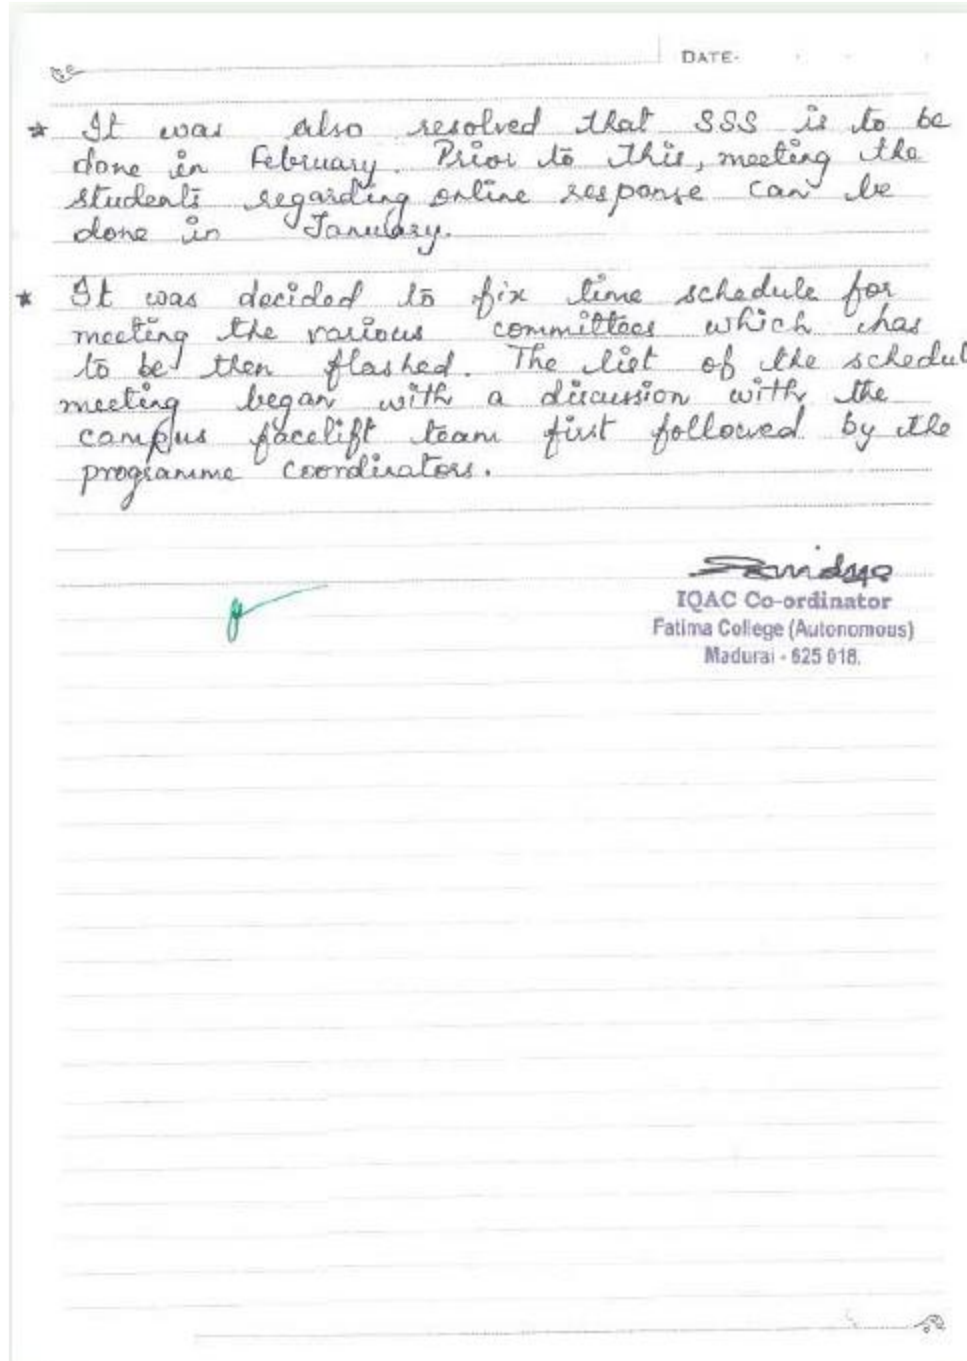 DATE-
* It was also resolved that SSS is to be
done in February. Prior to this, meeting the
students regarding online response can be
done in January.
* It was decided to fix time schedule for
meeting the various committees which has
to be then flashed. The list of the schedul
meeting began with a discussion with the
campus facelift team first followed by the
programme coordinators.
IQAC Co-ordinator
Fatima College (Autonomous)
Madurai - 625 018.